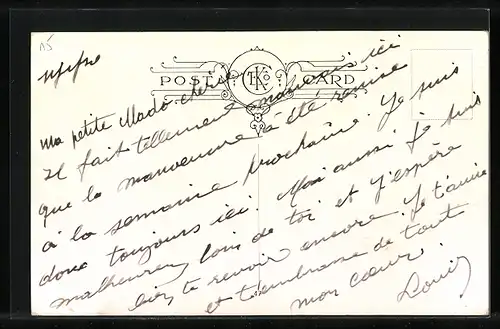 A5
POST CARD
Ma petite Mado chérie
Il fait tellement mauvais ici
que la manoeuvre a été remise
à la semaine prochaine. Je suis
donc toujours ici. Moi aussi je suis
malheureux loin de toi et j'espère
bien te revoir encore. Je t'aime
et t'embrasse de tout
mon coeur.
Louis